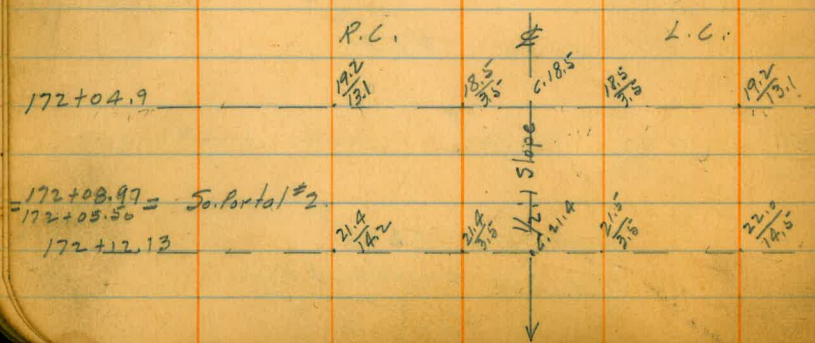 R.C. ℄ L.C.
172+04.9 19.2/13.1 18.5/3.5 C.18.5 18.5/3.5 19.2/13.1
1/2:1 Slope
=172+08.97= So. Portal #2
172+05.50
172+12.13 21.4/14.2 21.4/3.5 C.21.4 21.5/3.5 22.0/14.5